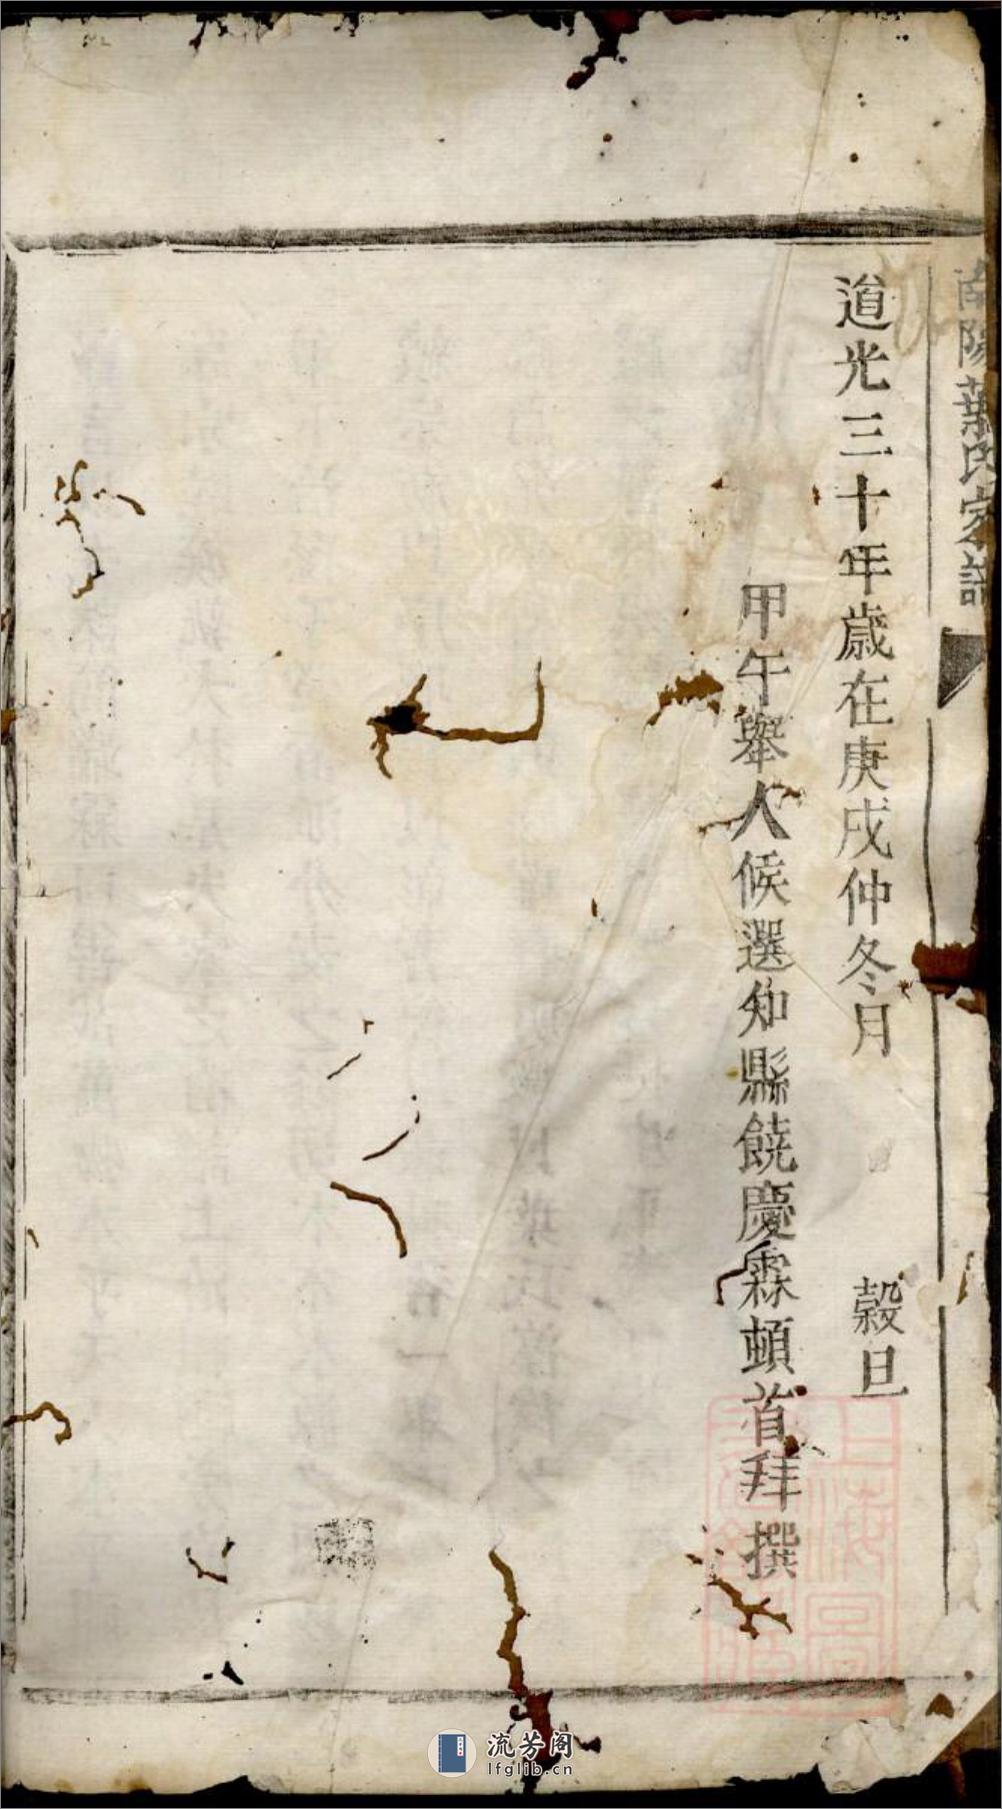 南陽葉氏宗譜
道光三十年歲在庚戌仲冬月 穀旦
甲午舉人候選知縣饒慶霖頓首拜撰
上海圖
流芳阁
lfglib.cn